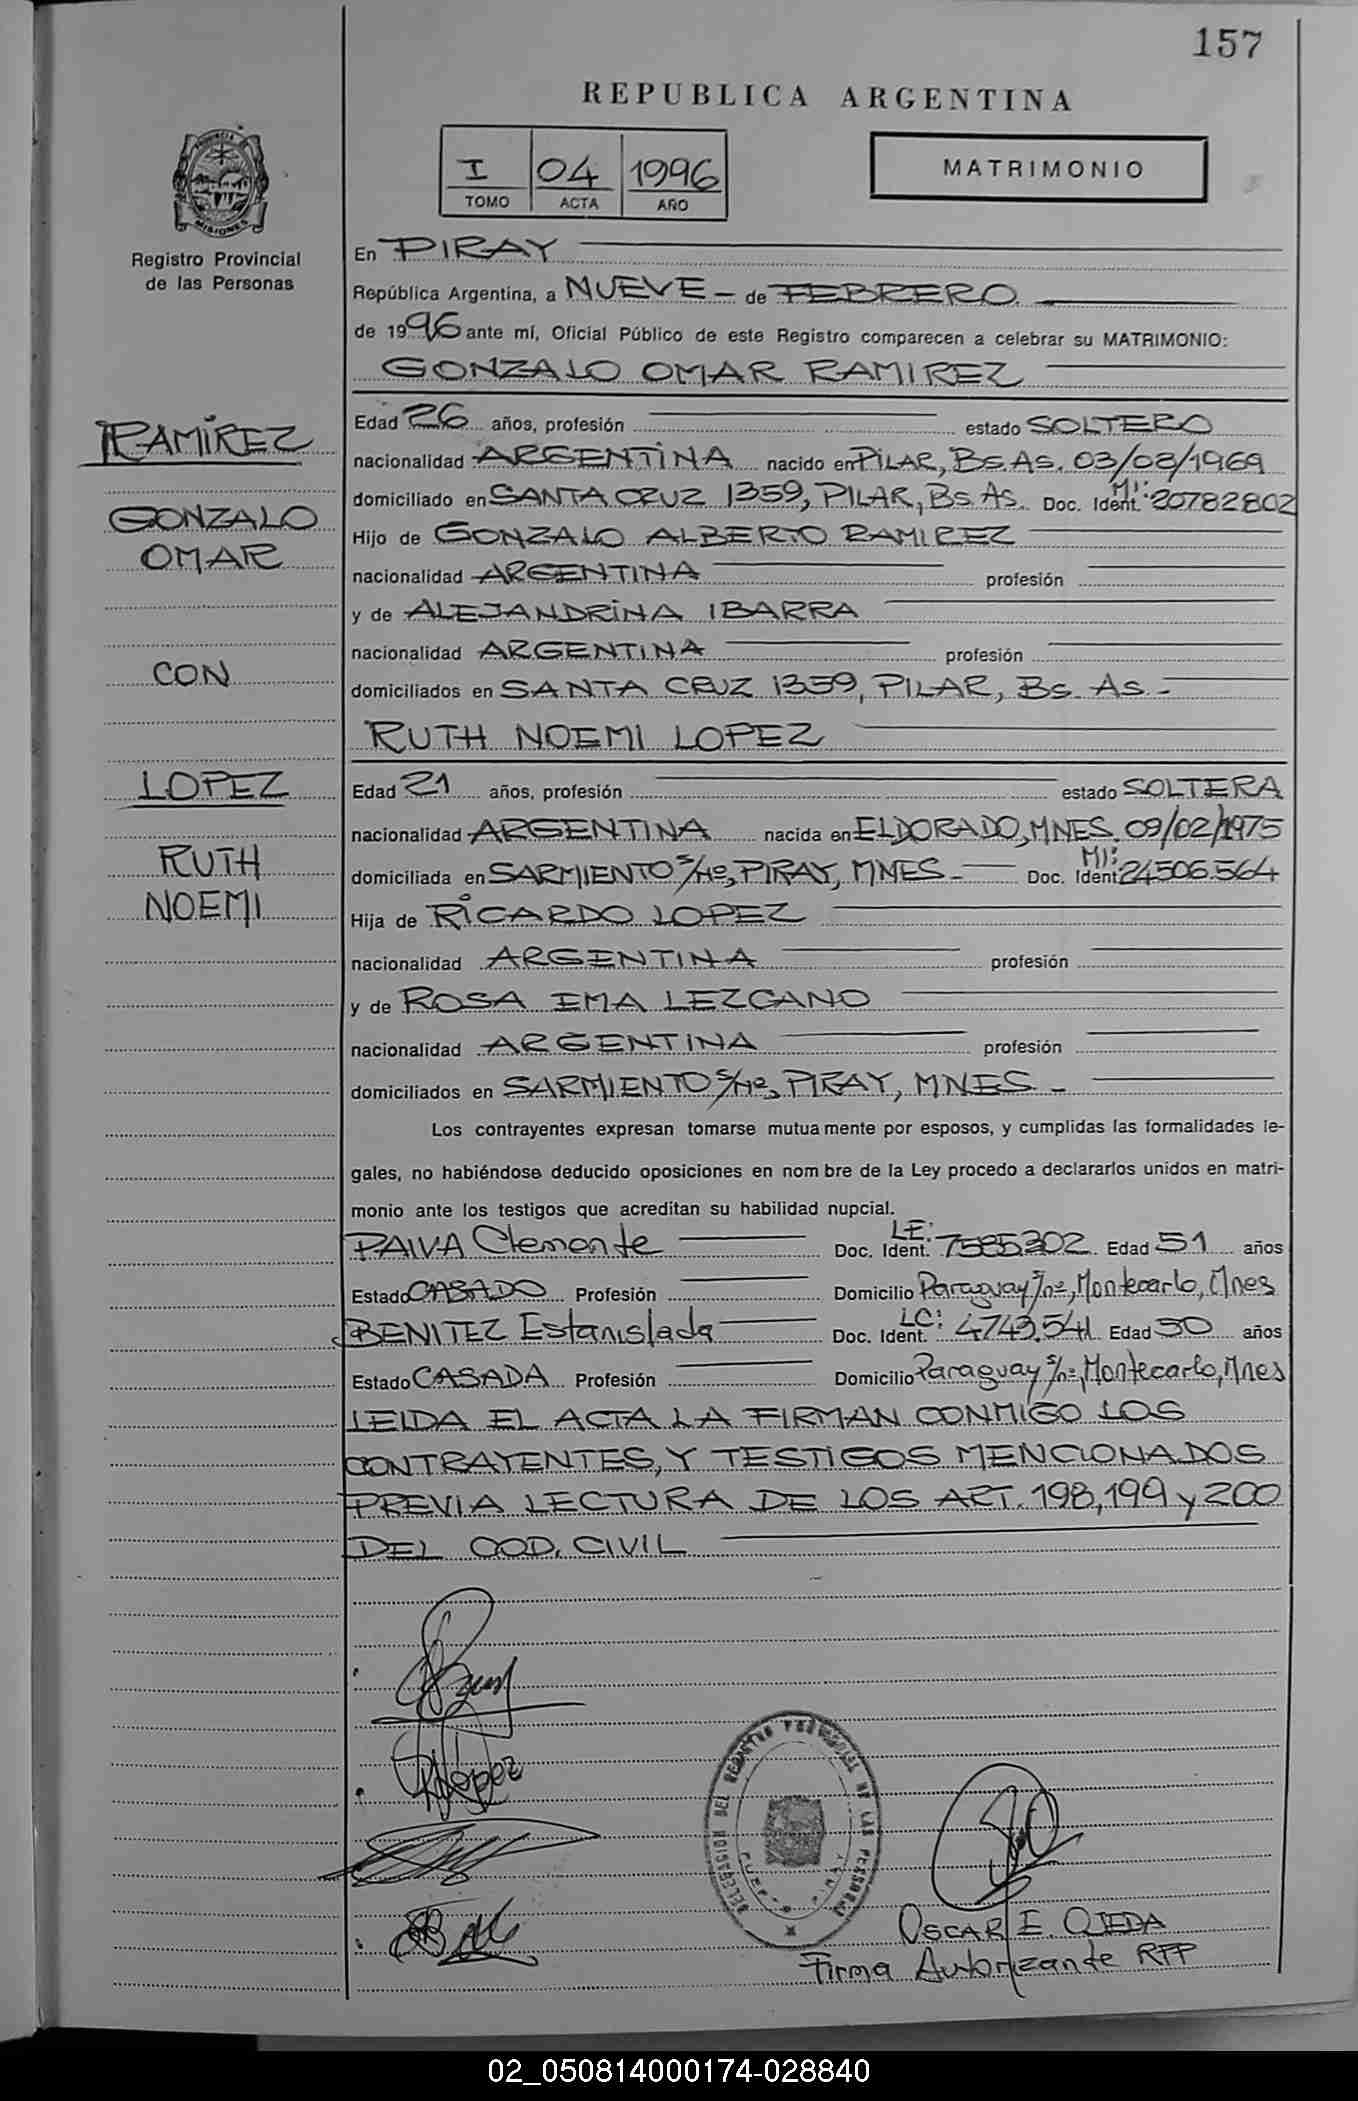 157
REPUBLICA ARGENTINA
I 04 1996
TOMO ACTA AÑO
MATRIMONIO
PROVINCIA DE MISIONES
Registro Provincial
de las Personas
En PIRAY
República Argentina, a NUEVE - de FEBRERO
de 1996 ante mí, Oficial Público de este Registro comparecen a celebrar su MATRIMONIO:
GONZALO OMAR RAMIREZ
RAMÍREZ
GONZALO
OMAR
CON
LOPEZ
RUTH
NOEMI
Edad 26 años, profesión estado SOLTERO
nacionalidad ARGENTINA nacido en PILAR, Bs. As. 03/08/1969
domiciliado en SANTA CRUZ 1359, PILAR, Bs. As. Doc. Ident. MI: 20782802
Hijo de GONZALO ALBERTO RAMIREZ
nacionalidad ARGENTINA profesión
y de ALEJANDRINA IBARRA
nacionalidad ARGENTINA profesión
domiciliados en SANTA CRUZ 1359, PILAR, Bs. As. -
RUTH NOEMI LOPEZ
Edad 21 años, profesión estado SOLTERA
nacionalidad ARGENTINA nacida en ELDORADO, MNES. 09/02/1975
domiciliada en SARMIENTO s/nº, PIRAY, MNES - Doc. Ident MI: 24506.564
Hija de RICARDO LOPEZ
nacionalidad ARGENTINA profesión
y de ROSA EMA LEZCANO
nacionalidad ARGENTINA profesión
domiciliados en SARMIENTO s/nº, PIRAY, MNES -
Los contrayentes expresan tomarse mutua mente por esposos, y cumplidas las formalidades le-
gales, no habiéndose deducido oposiciones en nom bre de la Ley procedo a declararlos unidos en matri-
monio ante los testigos que acreditan su habilidad nupcial.
PAIVA Clemente Doc. Ident. LE: 7585302 Edad 51 años
Estado CASADO Profesión Domicilio Paraguay s/nº, Montecarlo, Mnes
BENITEZ Estanislada Doc. Ident. LC: 4743.541 Edad 50 años
Estado CASADA Profesión Domicilio Paraguay s/nº, Montecarlo, Mnes
LEIDA EL ACTA LA FIRMAN CONMIGO LOS
CONTRAYENTES, Y TESTIGOS MENCIONADOS
PREVIA LECTURA DE LOS ART. 198, 199 y 200
DEL COD. CIVIL
López
DELEGACION DEL REGISTRO PROVINCIAL DE LAS PERSONAS
OSCAR E. OJEDA
Firma Autorizante RPP
02_050814000174-028840